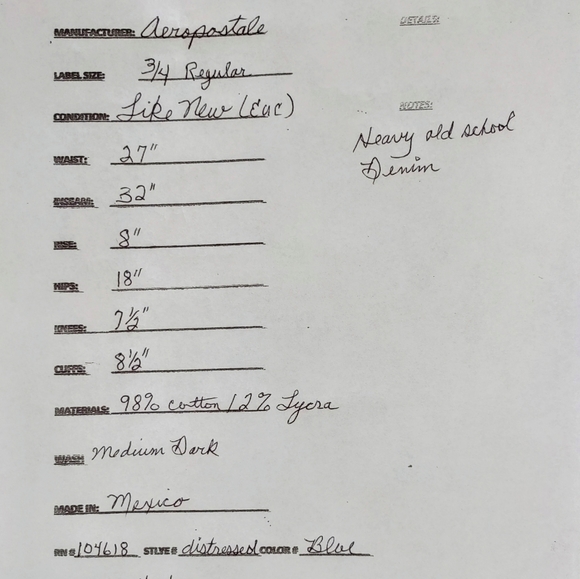 MANUFACTURER: Aeropostale
DETAILS:
LABEL SIZE: 3/4 Regular
CONDITION: Like New (EUC)
NOTES:
Heavy old school
Denim
WAIST: 27"
INSEAM: 32"
RISE: 8"
HIPS: 18"
KNEES: 7 1/2"
CUFFS: 8 1/2"
MATERIALS: 98% cotton / 2% Lycra
WASH Medium Dark
MADE IN: Mexico
RN # 104618 STLYE # distressed COLOR # Blue